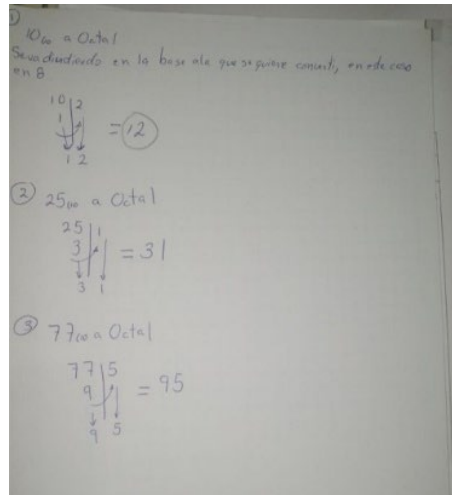 1
10₍₁₀₎ a Octal
Se va dividiendo en la base a la que se quiere convertir, en este caso
en 8
10 | 2
1
1 2
= 12
2 25₍₁₀₎ a Octal
25 | 1
3
3 1
= 31
3 77₍₁₀₎ a Octal
77 | 5
9
9 5
= 95